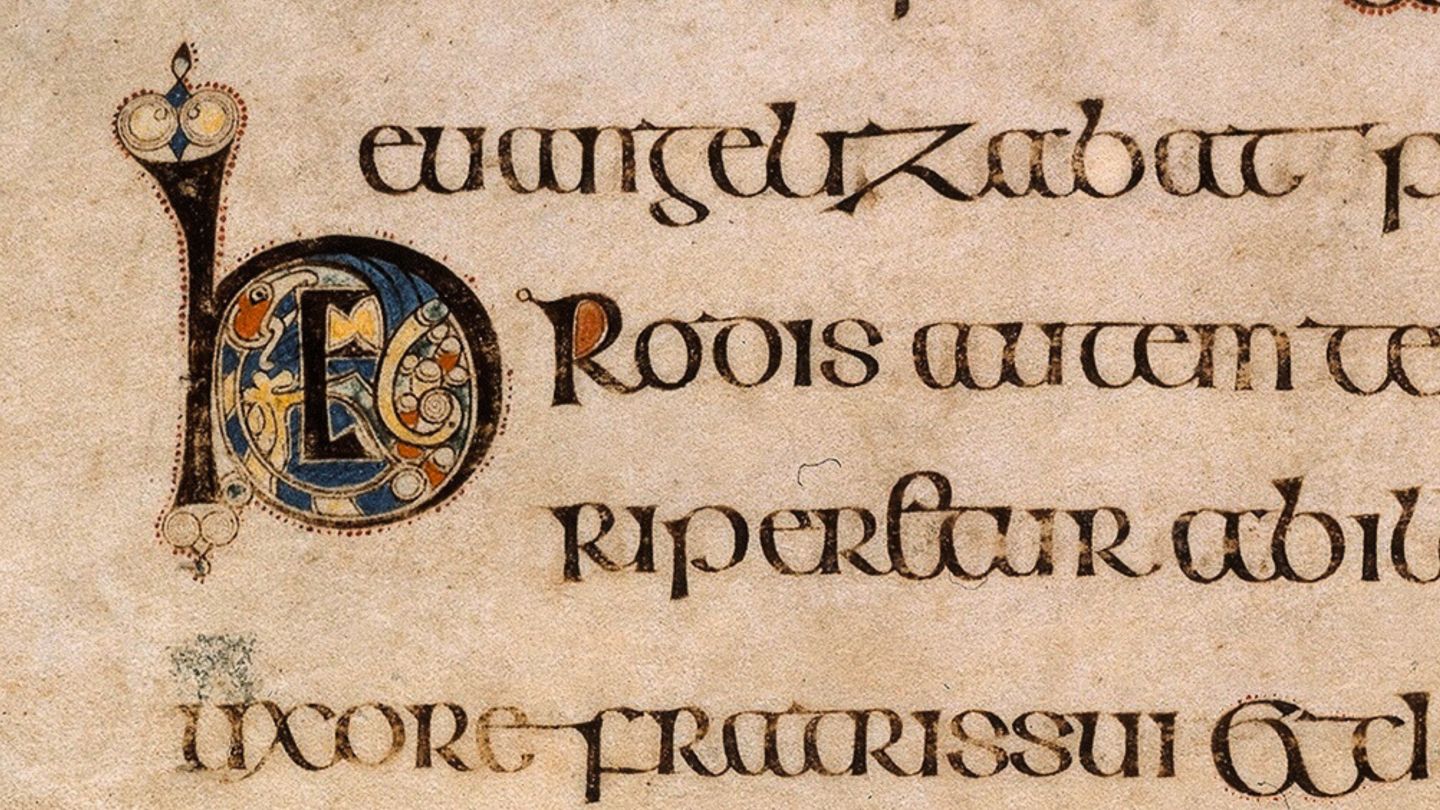 euangelizabat p
hERodis autem te
riperetur abil
uxore fratrissui et d